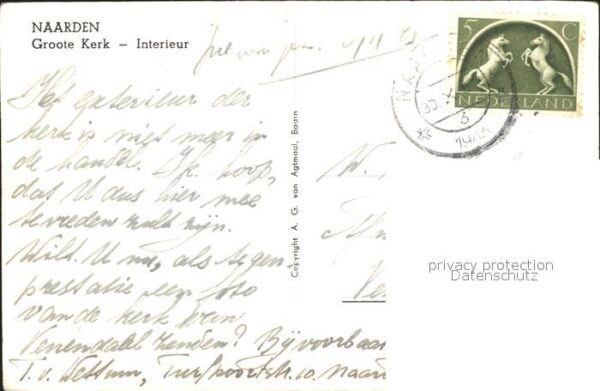 NAARDEN
Groote Kerk – Interieur
Het exterieur der
kerk is niet meer in
de handel. Ik hoop,
dat U dus hier mee
tevreden zult zijn.
Wilt U nu, als tegen
prestatie een foto
van de kerk van
Veenendaal zenden? Bijvoorbaa
T. v. Tur poortstr. 10. Naard
Copyright A. G. van Agtmaal, Baarn
5 C
NEDERLAND
NAA
30. X
3
1943
W.
privacy protection
Datenschutz